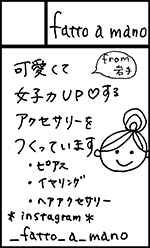 fatto a mano
from
岩手
可愛くて
女子力UP♡する
アクセサリーを
つくっています
・ピアス
・イヤリング
・ヘアアクセサリー
*instagram*
_fatto_a_mano